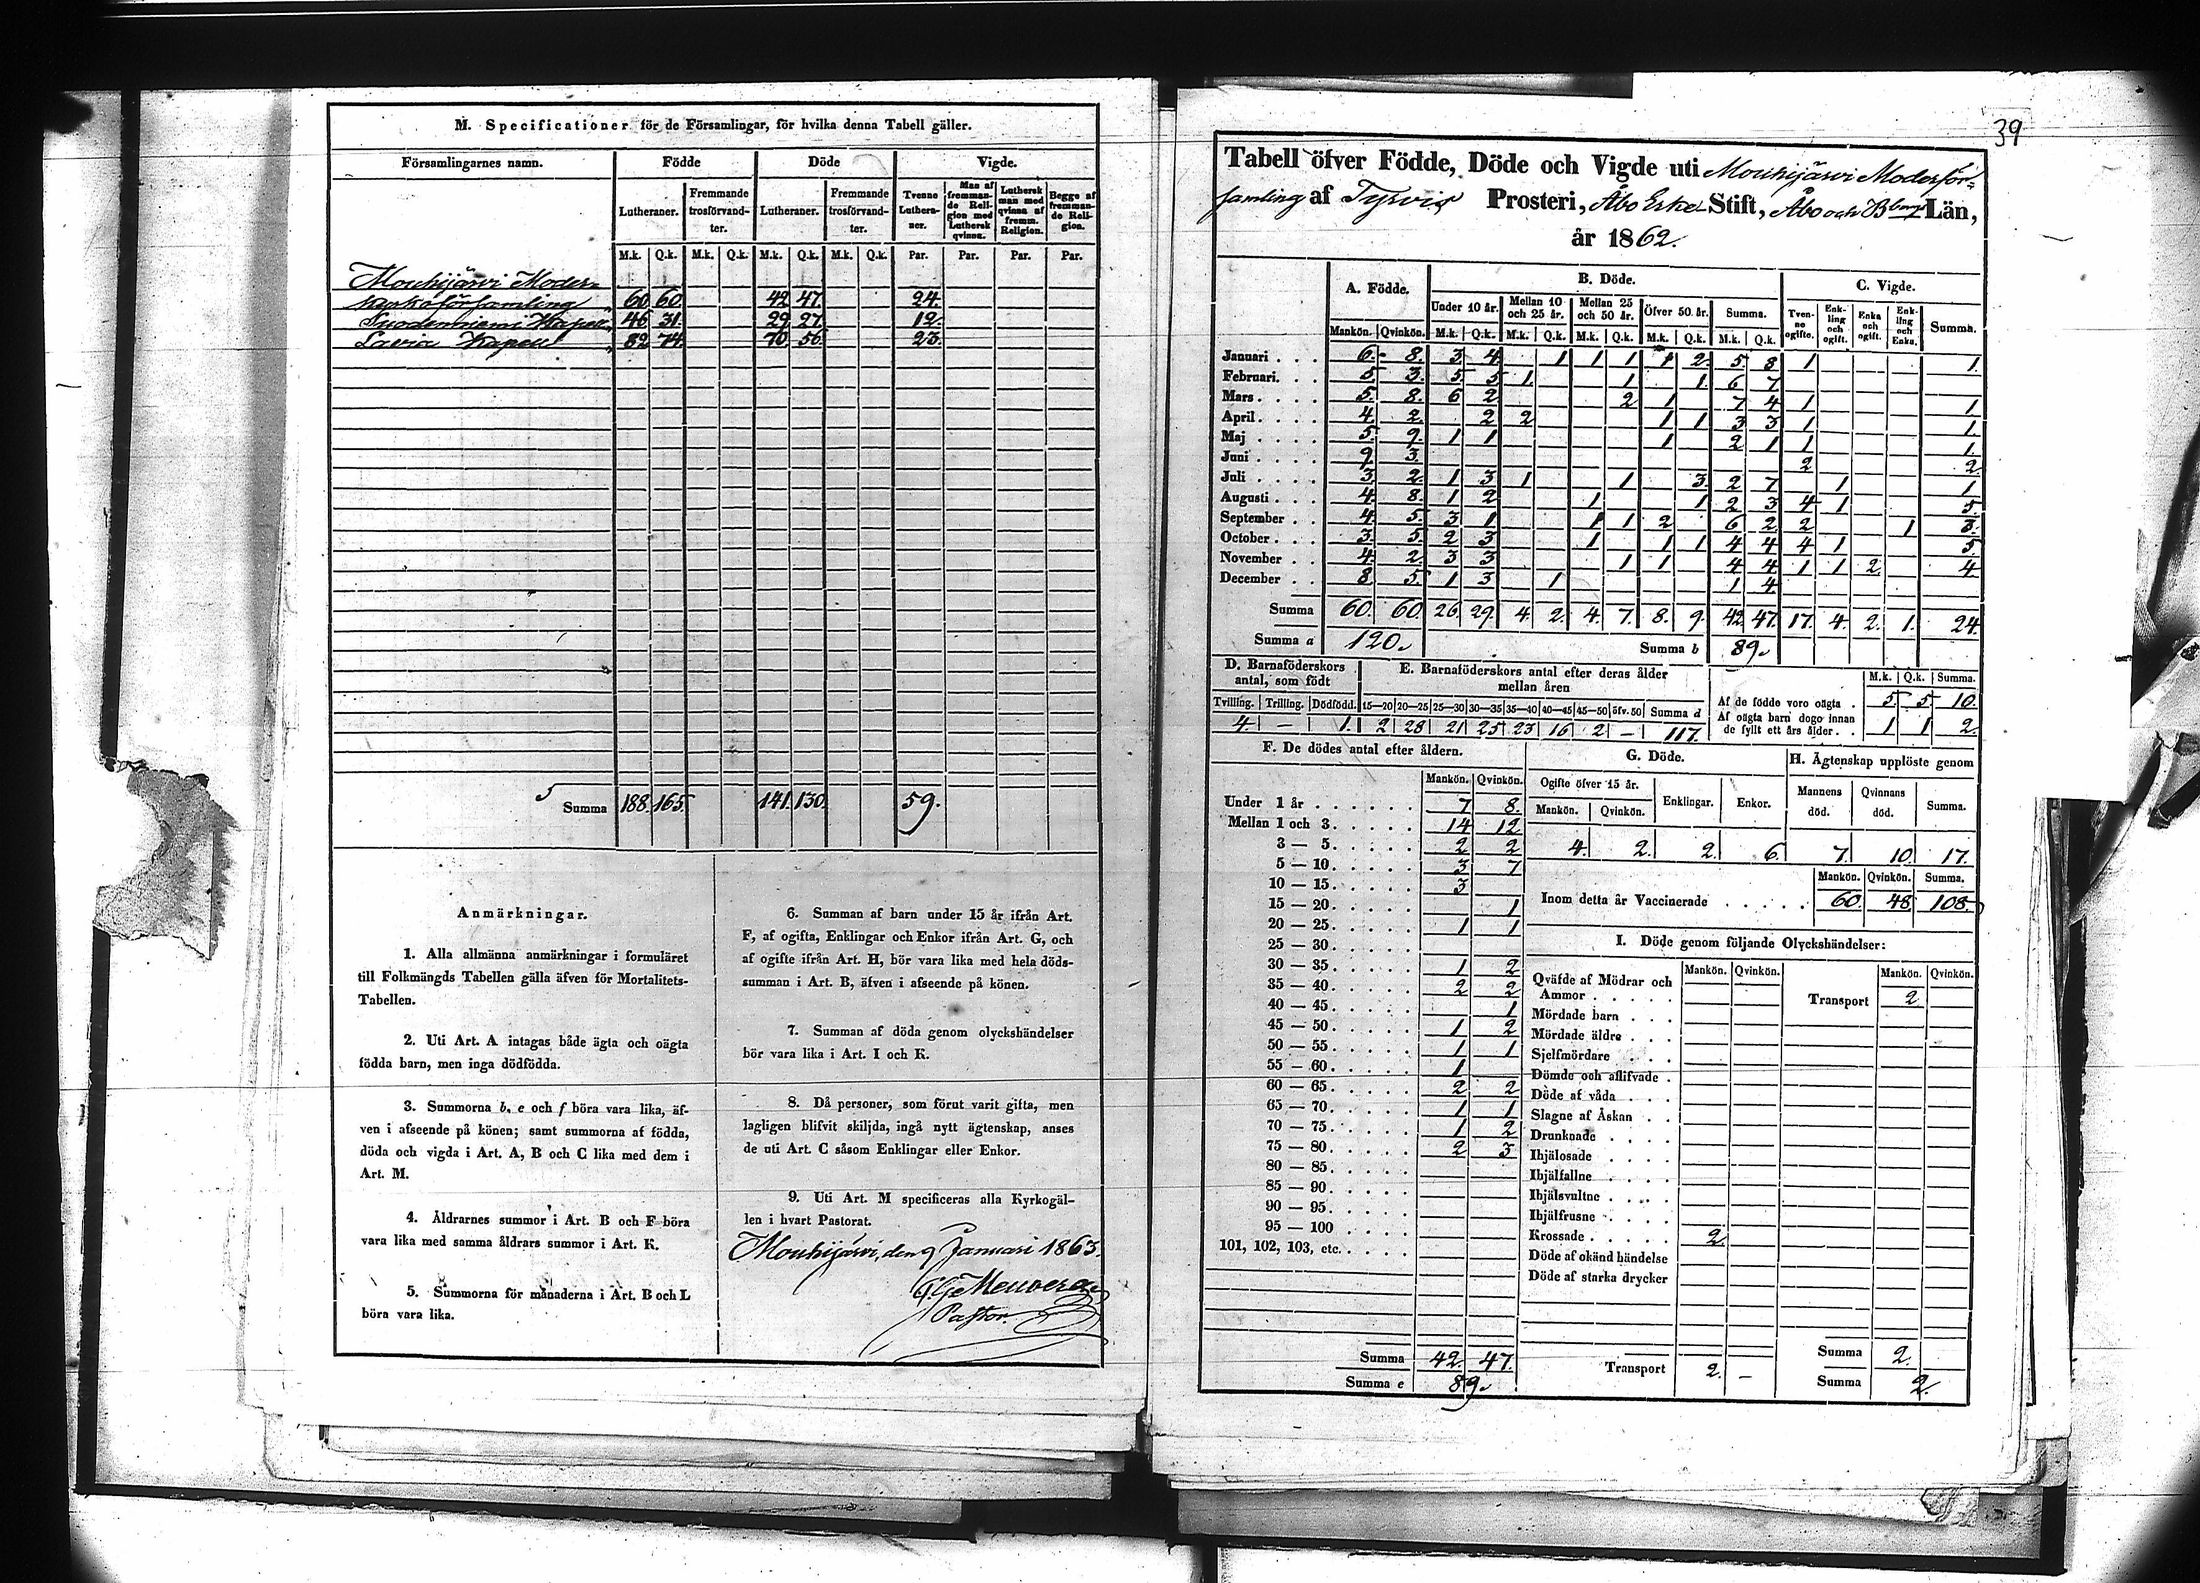 M. Specificationer för de Församlingar, för hvilka denna Tabell gäller.
Församlingarnes namn. Födde Döde Vigde.
Lutheraner. Fremmande trosförvandter. Lutheraner. Fremmande trosförvandter. Tvenne Lutheraner. Man af fremmande Religion med Luthersk qvinna. Luthersk man med qvinna af fremm. Religion. Begge af fremmande Religion.
M.k. Q.k. M.k. Q.k. M.k. Q.k. M.k. Q.k. Par. Par. Par. Par.
Mouhijärvi Moder-
kyrkoförsamling 60 60 42 47 24.
Suodenniemi Kapell 46 31. 29 27. 12.
Lavia Kapell 82 74. 70 56 23.
5 Summa 188. 165. 141. 130. 59.
Anmärkningar.
1. Alla allmänna anmärkningar i formuläret
till Folkmängds Tabellen gälla äfven för Mortalitets-
Tabellen.
2. Uti Art. A intagas både ägta och oägta
födda barn, men inga dödfödda.
3. Summorna b, e och f böra vara lika, äf-
ven i afseende på könen; samt summorna af födda,
döda och vigda i Art. A, B och C lika med dem i
Art. M.
4. Åldrarnes summor i Art. B och F böra
vara lika med samma åldrars summor i Art. K.
5. Summorna för månaderna i Art. B och L
böra vara lika.
6. Summan af barn under 15 år ifrån Art.
F, af ogifta, Enklingar och Enkor ifrån Art. G, och
af ogifte ifrån Art. H, bör vara lika med hela döds-
summan i Art. B, äfven i afseende på könen.
7. Summan af döda genom olyckshändelser
bör vara lika i Art. I och K.
8. Då personer, som förut varit gifta, men
lagligen blifvit skiljda, ingå nytt ägtenskap, anses
de uti Art. C såsom Enklingar eller Enkor.
9. Uti Art. M specificeras alla Kyrkogäl-
len i hvart Pastorat.
Mouhijärvi, den 9 Januari 1863.
Pastor.
39
Tabell öfver Födde, Döde och Vigde uti Mouhijärvi Moderför-
samling af Tyrvis Prosteri, Åbo Erke Stift, Åbo och Bborgs Län,
år 1862.
A. Födde. B. Döde. C. Vigde.
Under 10 år. Mellan 10 och 25 år. Mellan 25 och 50 år. Öfver 50 år. Summa. Tvenne ogifte. Enkling och ogift. Enka och ogift. Enkling och Enka. Summa.
Mankön. Qvinkön. M.k. Q.k. M.k. Q.k. M.k. Q.k. M.k. Q.k. M.k. Q.k.
Januari 6. 8. 3 4 1 1 1 1 2. 5. 8 1 1.
Februari 5 3. 5. 5 1. 1 1. 6 7
Mars 5. 8. 6 2 2 1 7 4 1 1
April 4. 2. 2 2 1 1 3 3 1 1.
Maj 5 9. 1 1 1 2 1 1 1.
Juni 9. 3. 2 2.
Juli 3. 2. 1 3 1 1 3. 2 7 1 1
Augusti 4. 8. 1 2 1 1 2 3 4 1 5.
September 4. 5. 3 1 1 1 2 6 2 2 1 3.
October 3. 5. 2 3 1 1 1 4 4 4 1 5.
November 4 2. 3 3 1 1 4 4 1 1 2. 4.
December 8. 5. 1 3 1 1 4.
Summa 60. 60. 26. 29. 4. 2. 4. 7. 8. 9. 42. 47. 17. 4. 2. 1. 24.
Summa a 120. Summa b 89.
D. Barnaföderskors antal, som födt E. Barnaföderskors antal efter deras ålder mellan åren M.k. Q.k. Summa.
Tvilling. Trilling. Dödfödd. 15—20 20—25 25—30 30—35 35—40 40—45 45—50 öfv. 50 Summa d
4. — 1. 2 28 21 25 23 16 2 — 117.
Af de födde voro oägta . 5 5 10.
Af oägta barn dogo innan de fyllt ett års ålder . . 1 1 2.
F. De dödes antal efter åldern.
Mankön. Qvinkön.
Under 1 år 7 8.
Mellan 1 och 3. 14 12
3 — 5. 2 2
5 — 10. 3 7
10 — 15. 3
15 — 20. 1
20 — 25. 1 1
25 — 30.
30 — 35. 1 2
35 — 40. 2 2
40 — 45. 1
45 — 50. 1 2
50 — 55. 1 1
55 — 60. 1
60 — 65. 2 2
65 — 70. 1 1
70 — 75. 1 2
75 — 80. 2 3
80 — 85.
85 — 90.
90 — 95.
95 — 100
101, 102, 103, etc.
Summa 42. 47.
Summa e 89.
G. Döde. H. Ägtenskap upplöste genom
Ogifte öfver 15 år. Enklingar. Enkor. Mannens död. Qvinnans död. Summa.
Mankön. Qvinkön.
4. 2. 2. 6. 7. 10. 17.
Mankön. Qvinkön. Summa.
Inom detta år Vaccinerade 60. 48 108.
I. Döde genom följande Olyckshändelser:
Mankön. Qvinkön. Mankön. Qvinkön.
Qväfde af Mödrar och Ammor Transport 2
Mördade barn
Mördade äldre
Sjelfmördare
Dömde och aflifvade
Döde af våda
Slagne af Åskan
Drunknade
Ihjälosade
Ihjälfallne
Ihjälsvultne
Ihjälfrusne
Krossade 2.
Döde af okänd händelse
Döde af starka drycker
Summa 2.
Transport 2. —
Summa 2.